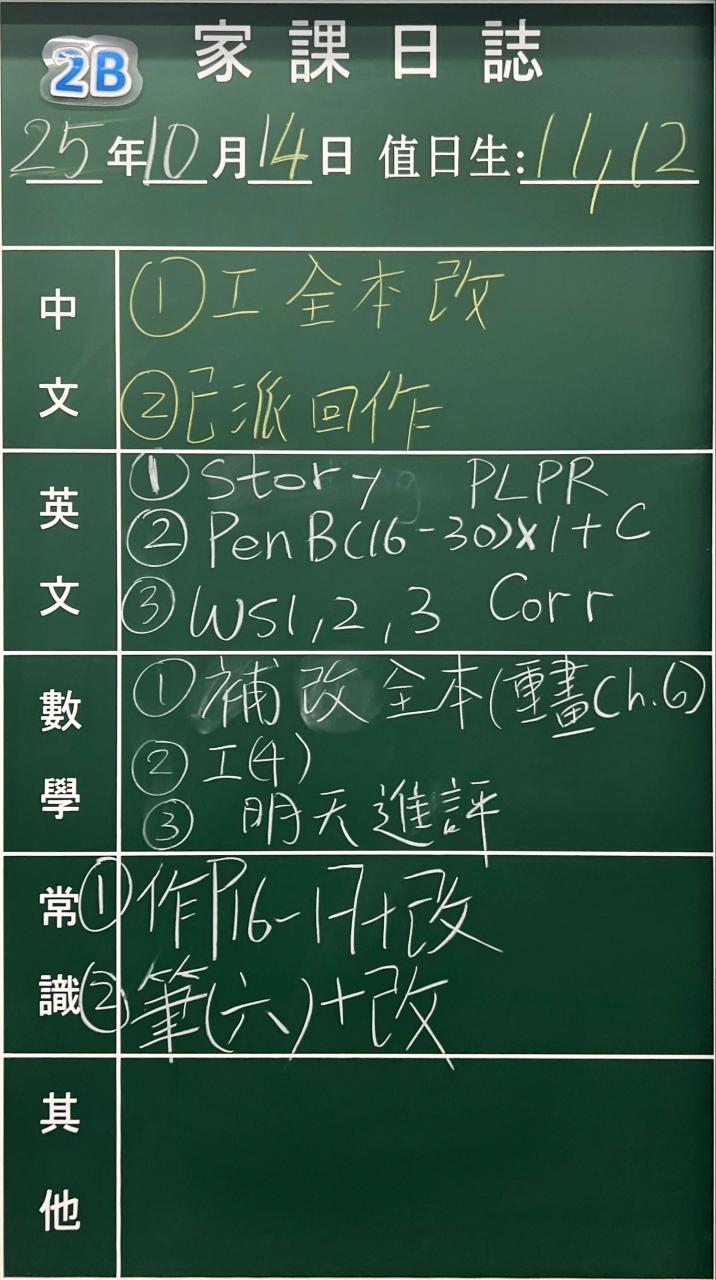 2B 家課日誌
25年10月14日 值日生:11,12
中文
①工全本改
②已派回作
英文
①Story PLPR
②PenB(16-30)x1+C
③WS1,2,3 Corr
數學
①補改全本(重畫Ch.6)
②工(4)
③明天進評
常識
①作P16-17+改
②筆(六)+改
其他